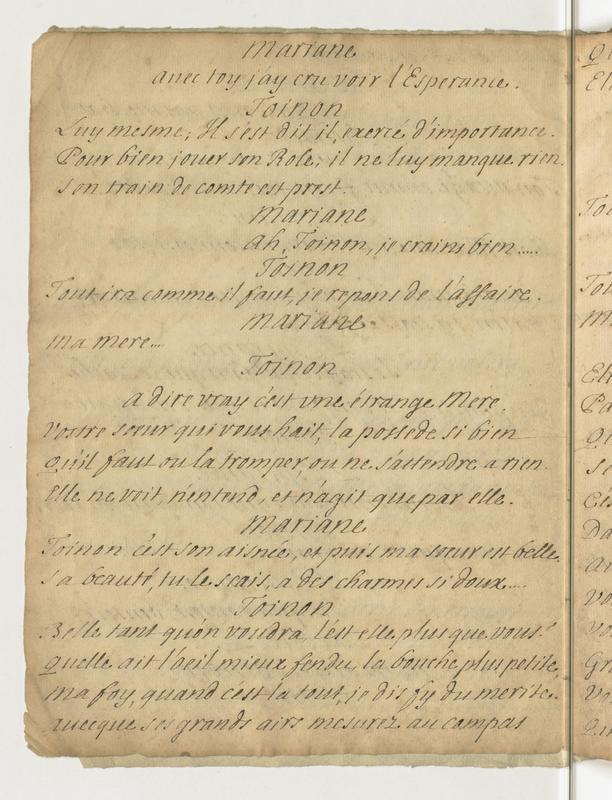 Mariane
avec toy j'ay cru voir l'Esperance.
Toinon
Luy mesme; Il s'est dit il, exercé d'importance.
Pour bien jouer son Role, il ne luy manque rien.
Son train de comte est prest.
Mariane
Ah, Toinon, je crains bien.....
Toinon
Tout ira comme il faut, je repons de l'affaire.
Mariane
ma mere...
Toinon
a dire vray c'est une étrange Mere.
Vostre soeur qui vous hait, la possede si bien
Qu'il faut ou la tromper, ou ne s'attendre a rien.
Elle ne voit, n'entend, et n'agit que par elle.
Mariane
Toinon c'est son aisnée, et puis ma soeur est belle,
sa beauté, tu le scais, a des charmes si doux....
Toinon
Belle tant qu'on voudra, l'est elle plus que vous?
Quelle ait l'oeil mieux fendu, la bouche plus petite,
ma foy, quand c'est la tout, je dis fy du merite.
avecque ses grands airs mesurez au compas